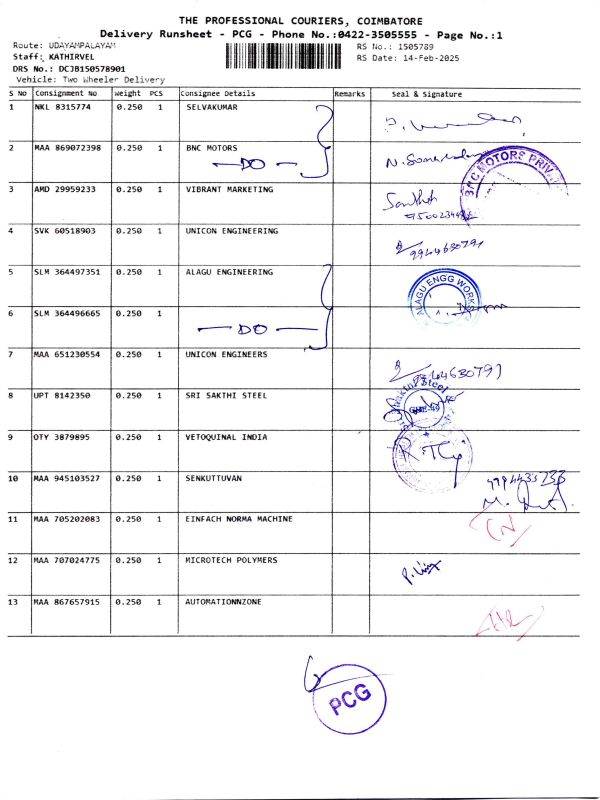 THE PROFESSIONAL COURIERS, COIMBATORE
Delivery Runsheet - PCG - Phone No.:0422-3505555 - Page No.:1
Route: UDAYAMPALAYAM RS No.: 1505789
Staff: KATHIRVEL RS Date: 14-Feb-2025
DRS No.: DCJB150578901
Vehicle: Two Wheeler Delivery
S No Consignment No Weight PCS Consignee Details Remarks Seal & Signature
1 NKL 8315774 0.250 1 SELVAKUMAR
2 MAA 869072398 0.250 1 BNC MOTORS
DO
BNC MOTORS
3 AMD 29959233 0.250 1 VIBRANT MARKETING
4 SVK 60518903 0.250 1 UNICON ENGINEERING
9944630791
5 SLM 364497351 0.250 1 ALAGU ENGINEERING
ALAGU ENGG WORKS
6 SLM 364496665 0.250 1
DO
7 MAA 651230554 0.250 1 UNICON ENGINEERS
8 UPT 8142350 0.250 1 SRI SAKTHI STEEL
9 OTY 3879895 0.250 1 VETOQUINAL INDIA
10 MAA 945103527 0.250 1 SENKUTTUVAN
11 MAA 705202083 0.250 1 EINFACH NORMA MACHINE
12 MAA 707024775 0.250 1 MICROTECH POLYMERS
13 MAA 867657915 0.250 1 AUTOMATIONNZONE
PCG